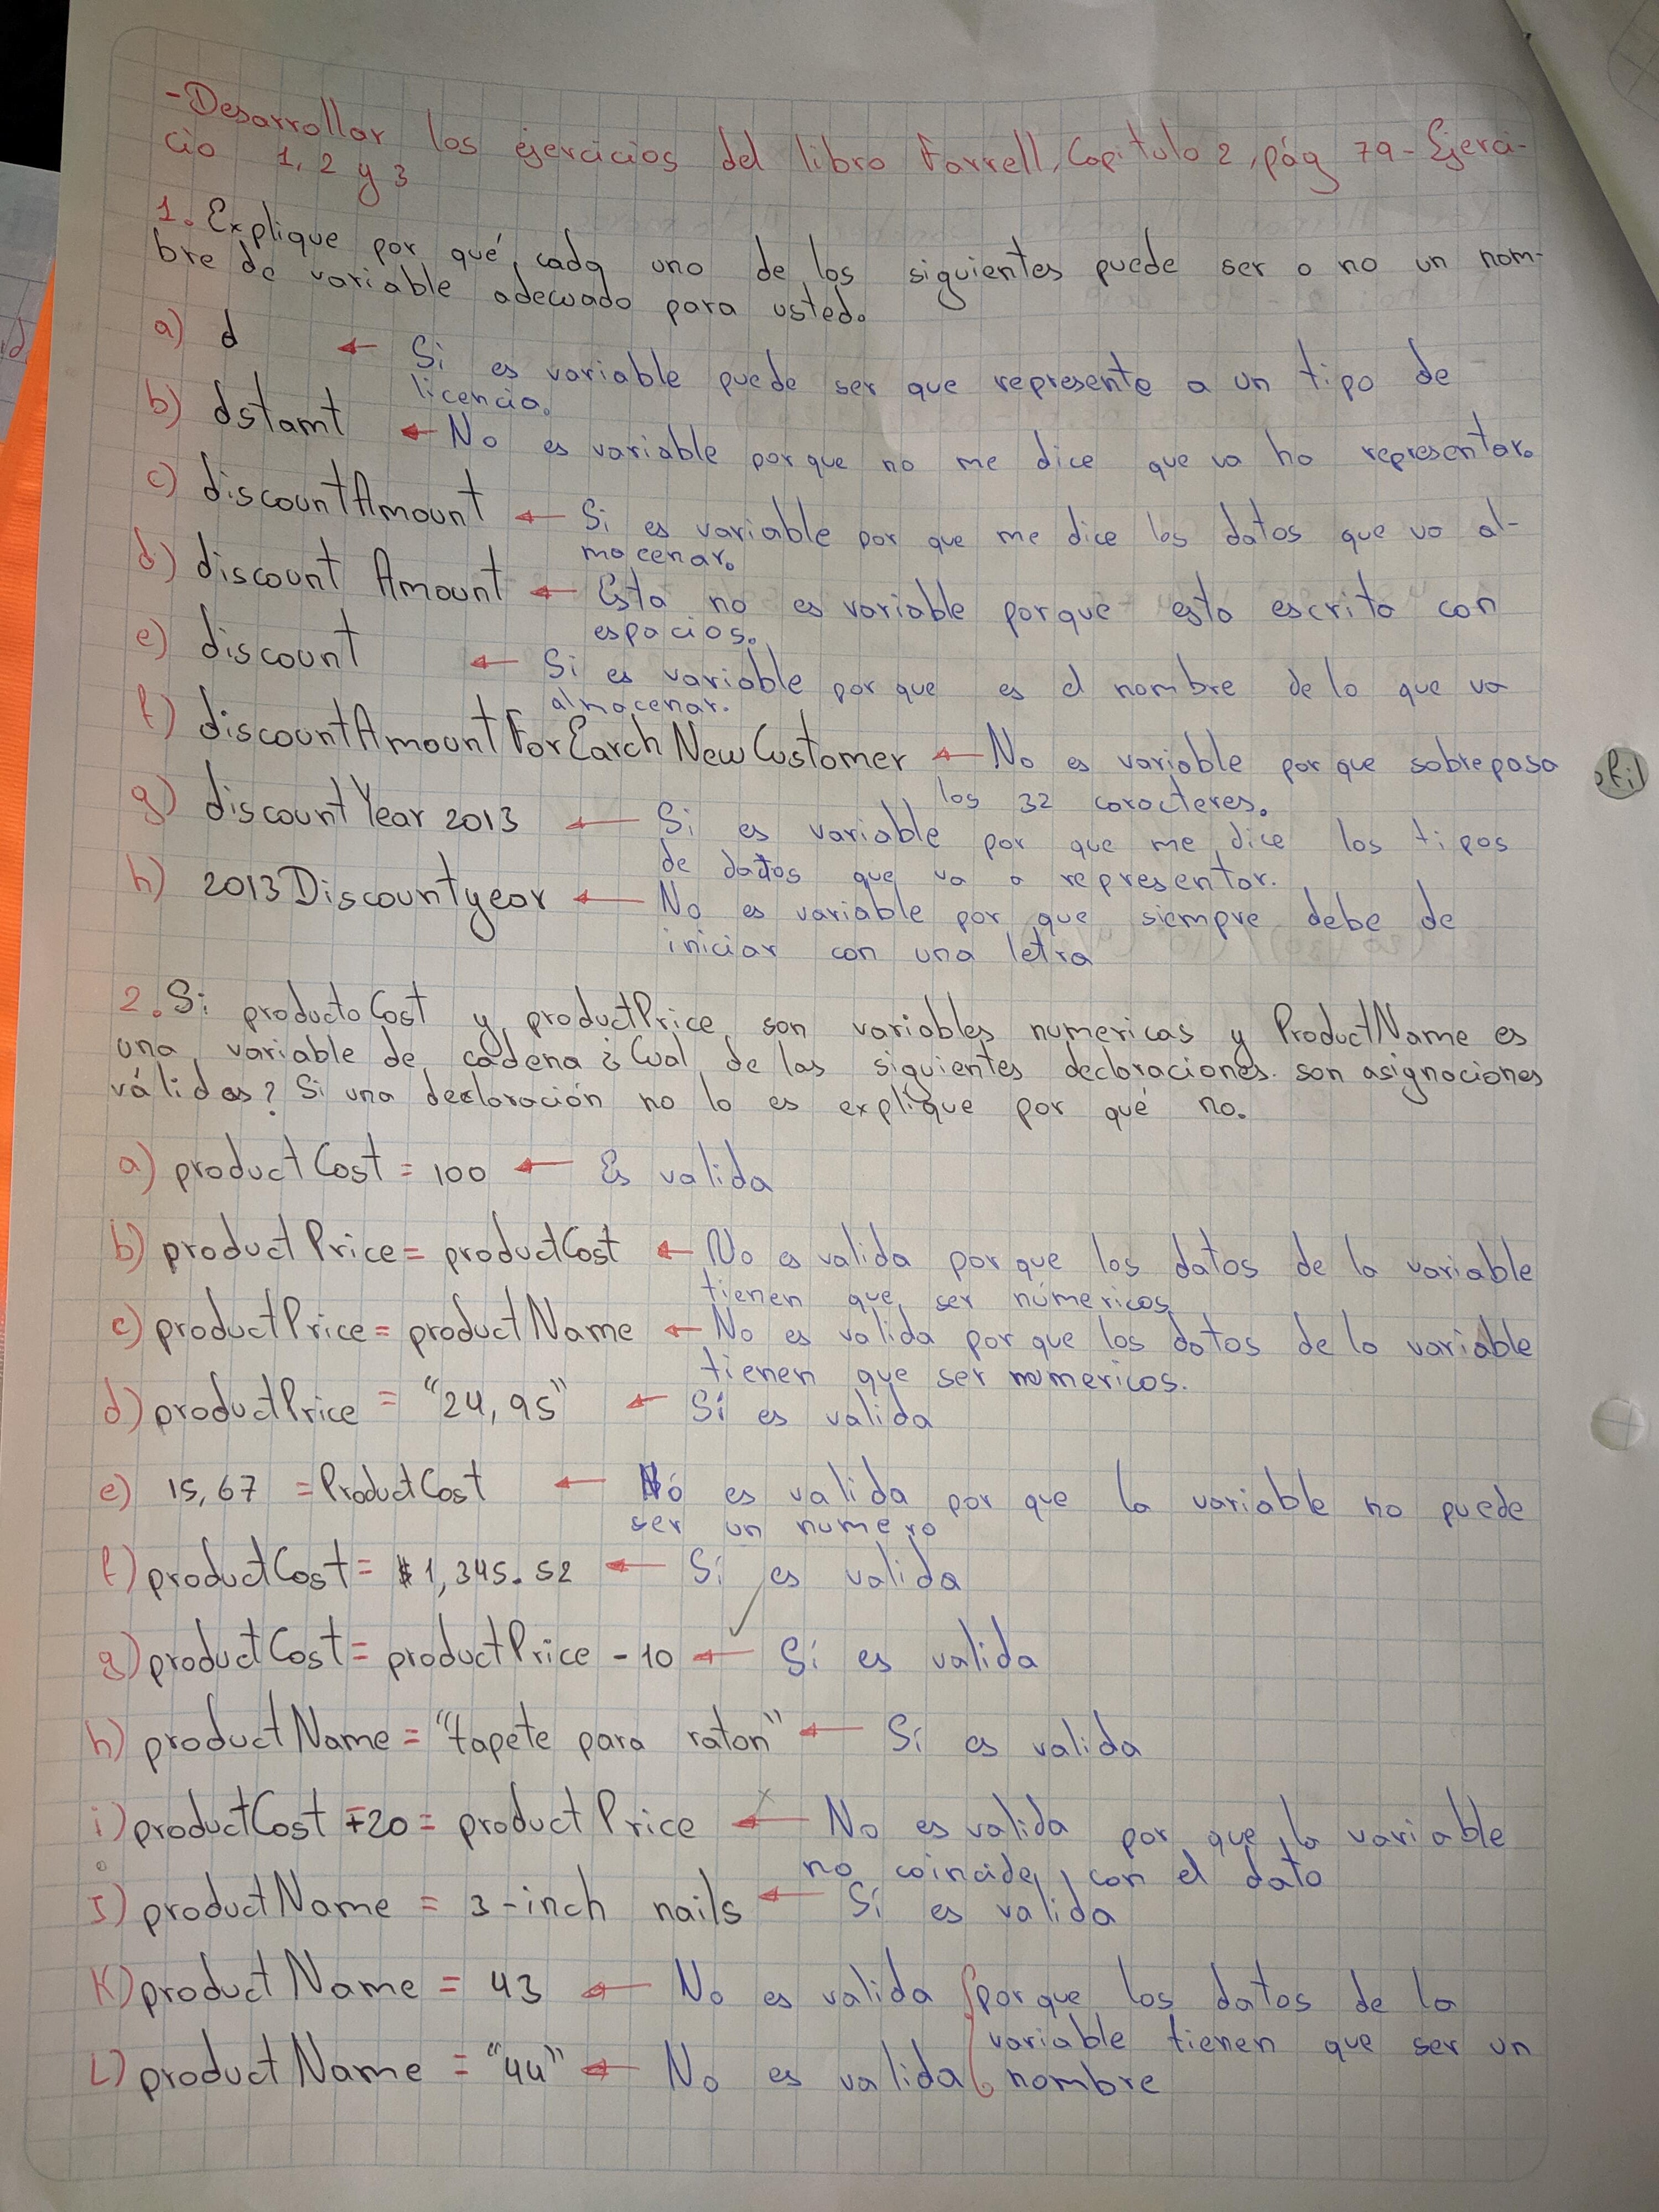 -Desarrollar los ejercicios del libro Farrell, Capitulo 2, pág 79 - Ejerci-
cio 1, 2 y 3
1. Explique por qué cada uno de los siguientes puede ser o no un nom-
bre de variable adecuado para usted.
a) d ← Si es variable puede ser que represente a un tipo de
licencia.
b) dstamt ← No es variable porque no me dice que va ha representar.
c) discountAmount ← Si es variable por que me dice los datos que va al-
macenar.
d) discount Amount ← Esta no es variable porque esta escrito con
espacios.
e) discount ← Si es variable por que es el nombre de lo que va
almacenar.
f) discountAmountForEarchNewCustomer ← No es variable por que sobrepasa
los 32 caracteres.
g) discountYear 2013 ← Si es variable por que me dice los tipos
de datos que va a representar.
h) 2013Discountyear ← No es variable por que siempre debe de
iniciar con una letra
2. Si productoCost y productPrice son variables numericas y ProductName es
una variable de cadena ¿Cual de las siguientes declaraciones son asignaciones
válidas? Si una declaración no lo es explique por qué no.
a) productCost = 100 ← Es valida
b) productPrice = productCost ← No es valida por que los datos de la variable
tienen que ser númericos
c) productPrice = productName ← No es valida por que los datos de la variable
tienen que ser numericos.
d) productPrice = "24,95" ← Sí es valida
e) 15,67 = ProductCost ← Nó es valida por que la variable no puede
ser un numero
f) productCost = $1,345.52 ← Sí es valida
g) productCost = productPrice - 10 ← Sí es valida
h) productName = "tapete para raton" ← Sí es valida
i) productCost +20 = productPrice ← No es valida por que la variable
no coincide con el dato
J) productName = 3-inch nails ← Sí es valida
K) productName = 43 ← No es valida porque los datos de la
variable tienen que ser un
L) productName = "44" ← No es valida nombre